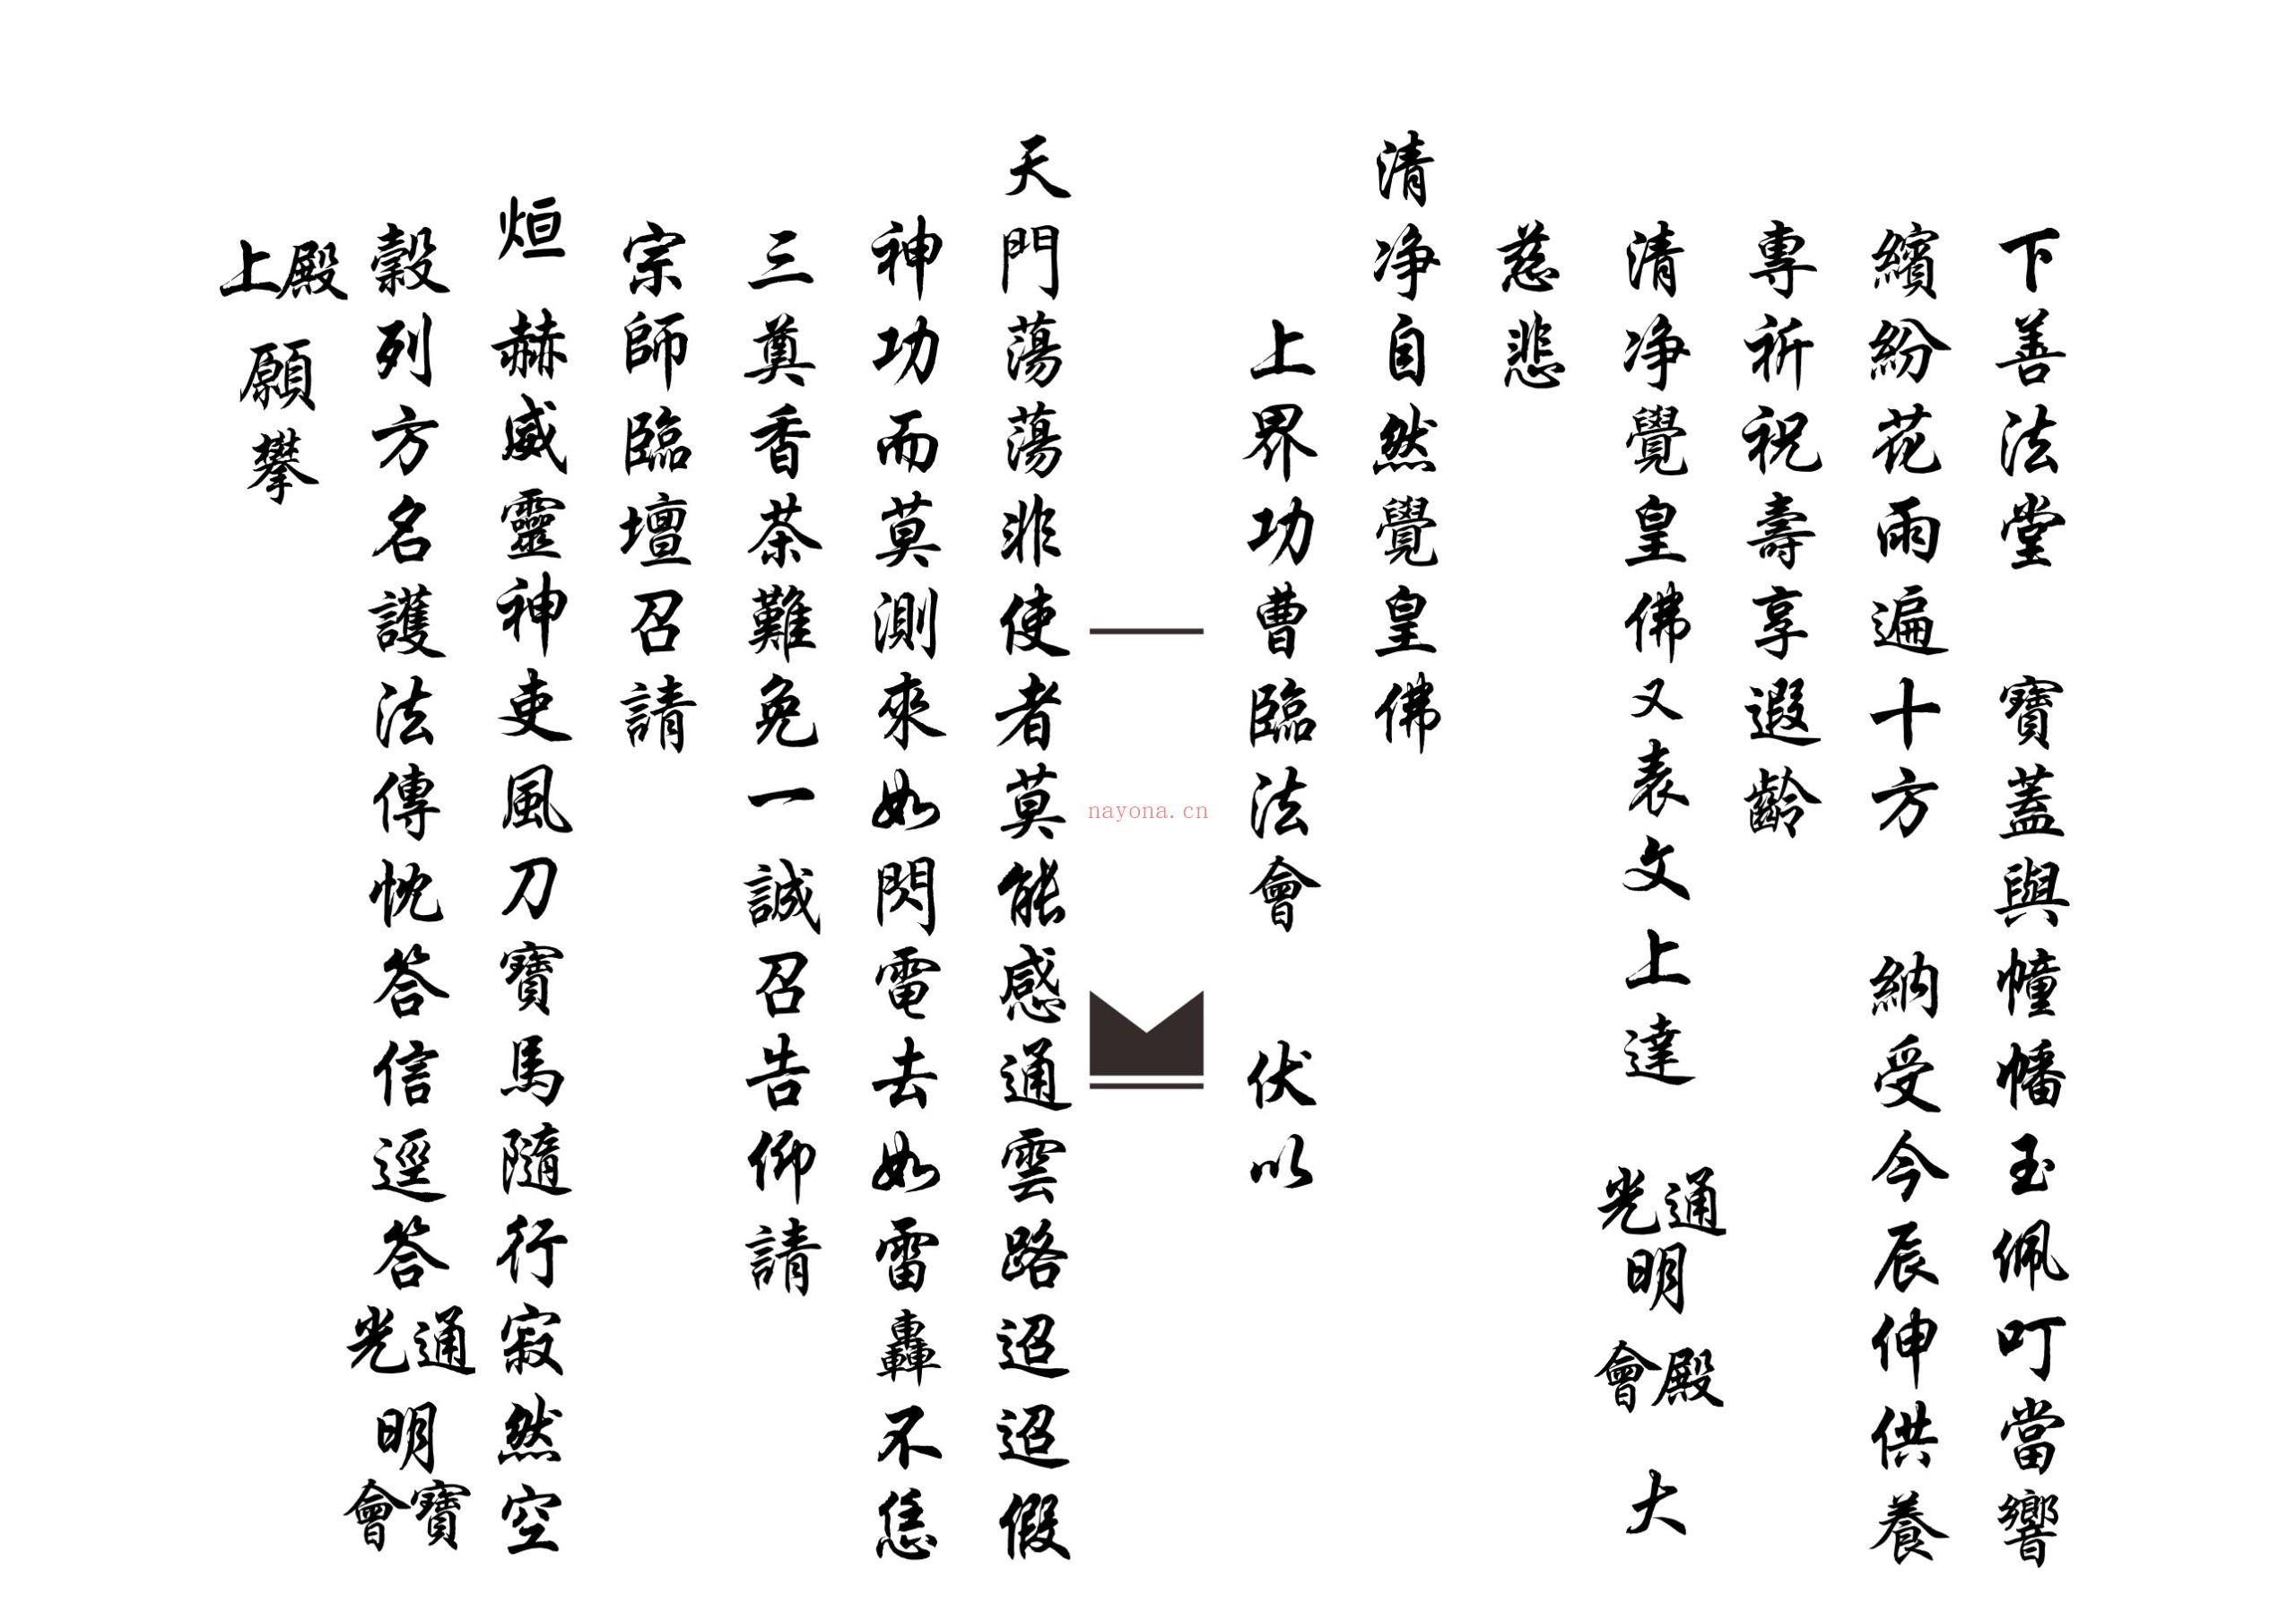 下善法堂 寶蓋與幢幡玉佩叮當響
繽紛花雨遍十方 納受今辰伸供養
專祈祝壽享遐齡
清净覺皇佛又表文上達 通光明殿會 大
慈悲
清净自然覺皇佛
上界功曹臨法會 伏以
nayona.cn
天門蕩蕩非使者莫能感通雲路迢迢假
神功而莫測來如閃電去如雷轟不恁
三奠香茶難免一誠召告仰請
宗師臨壇召請
烜赫威靈神吏風刀寶馬隨行寂然空
穀列方名護法傳忱答信逕答通光明寶會
殿上願攀